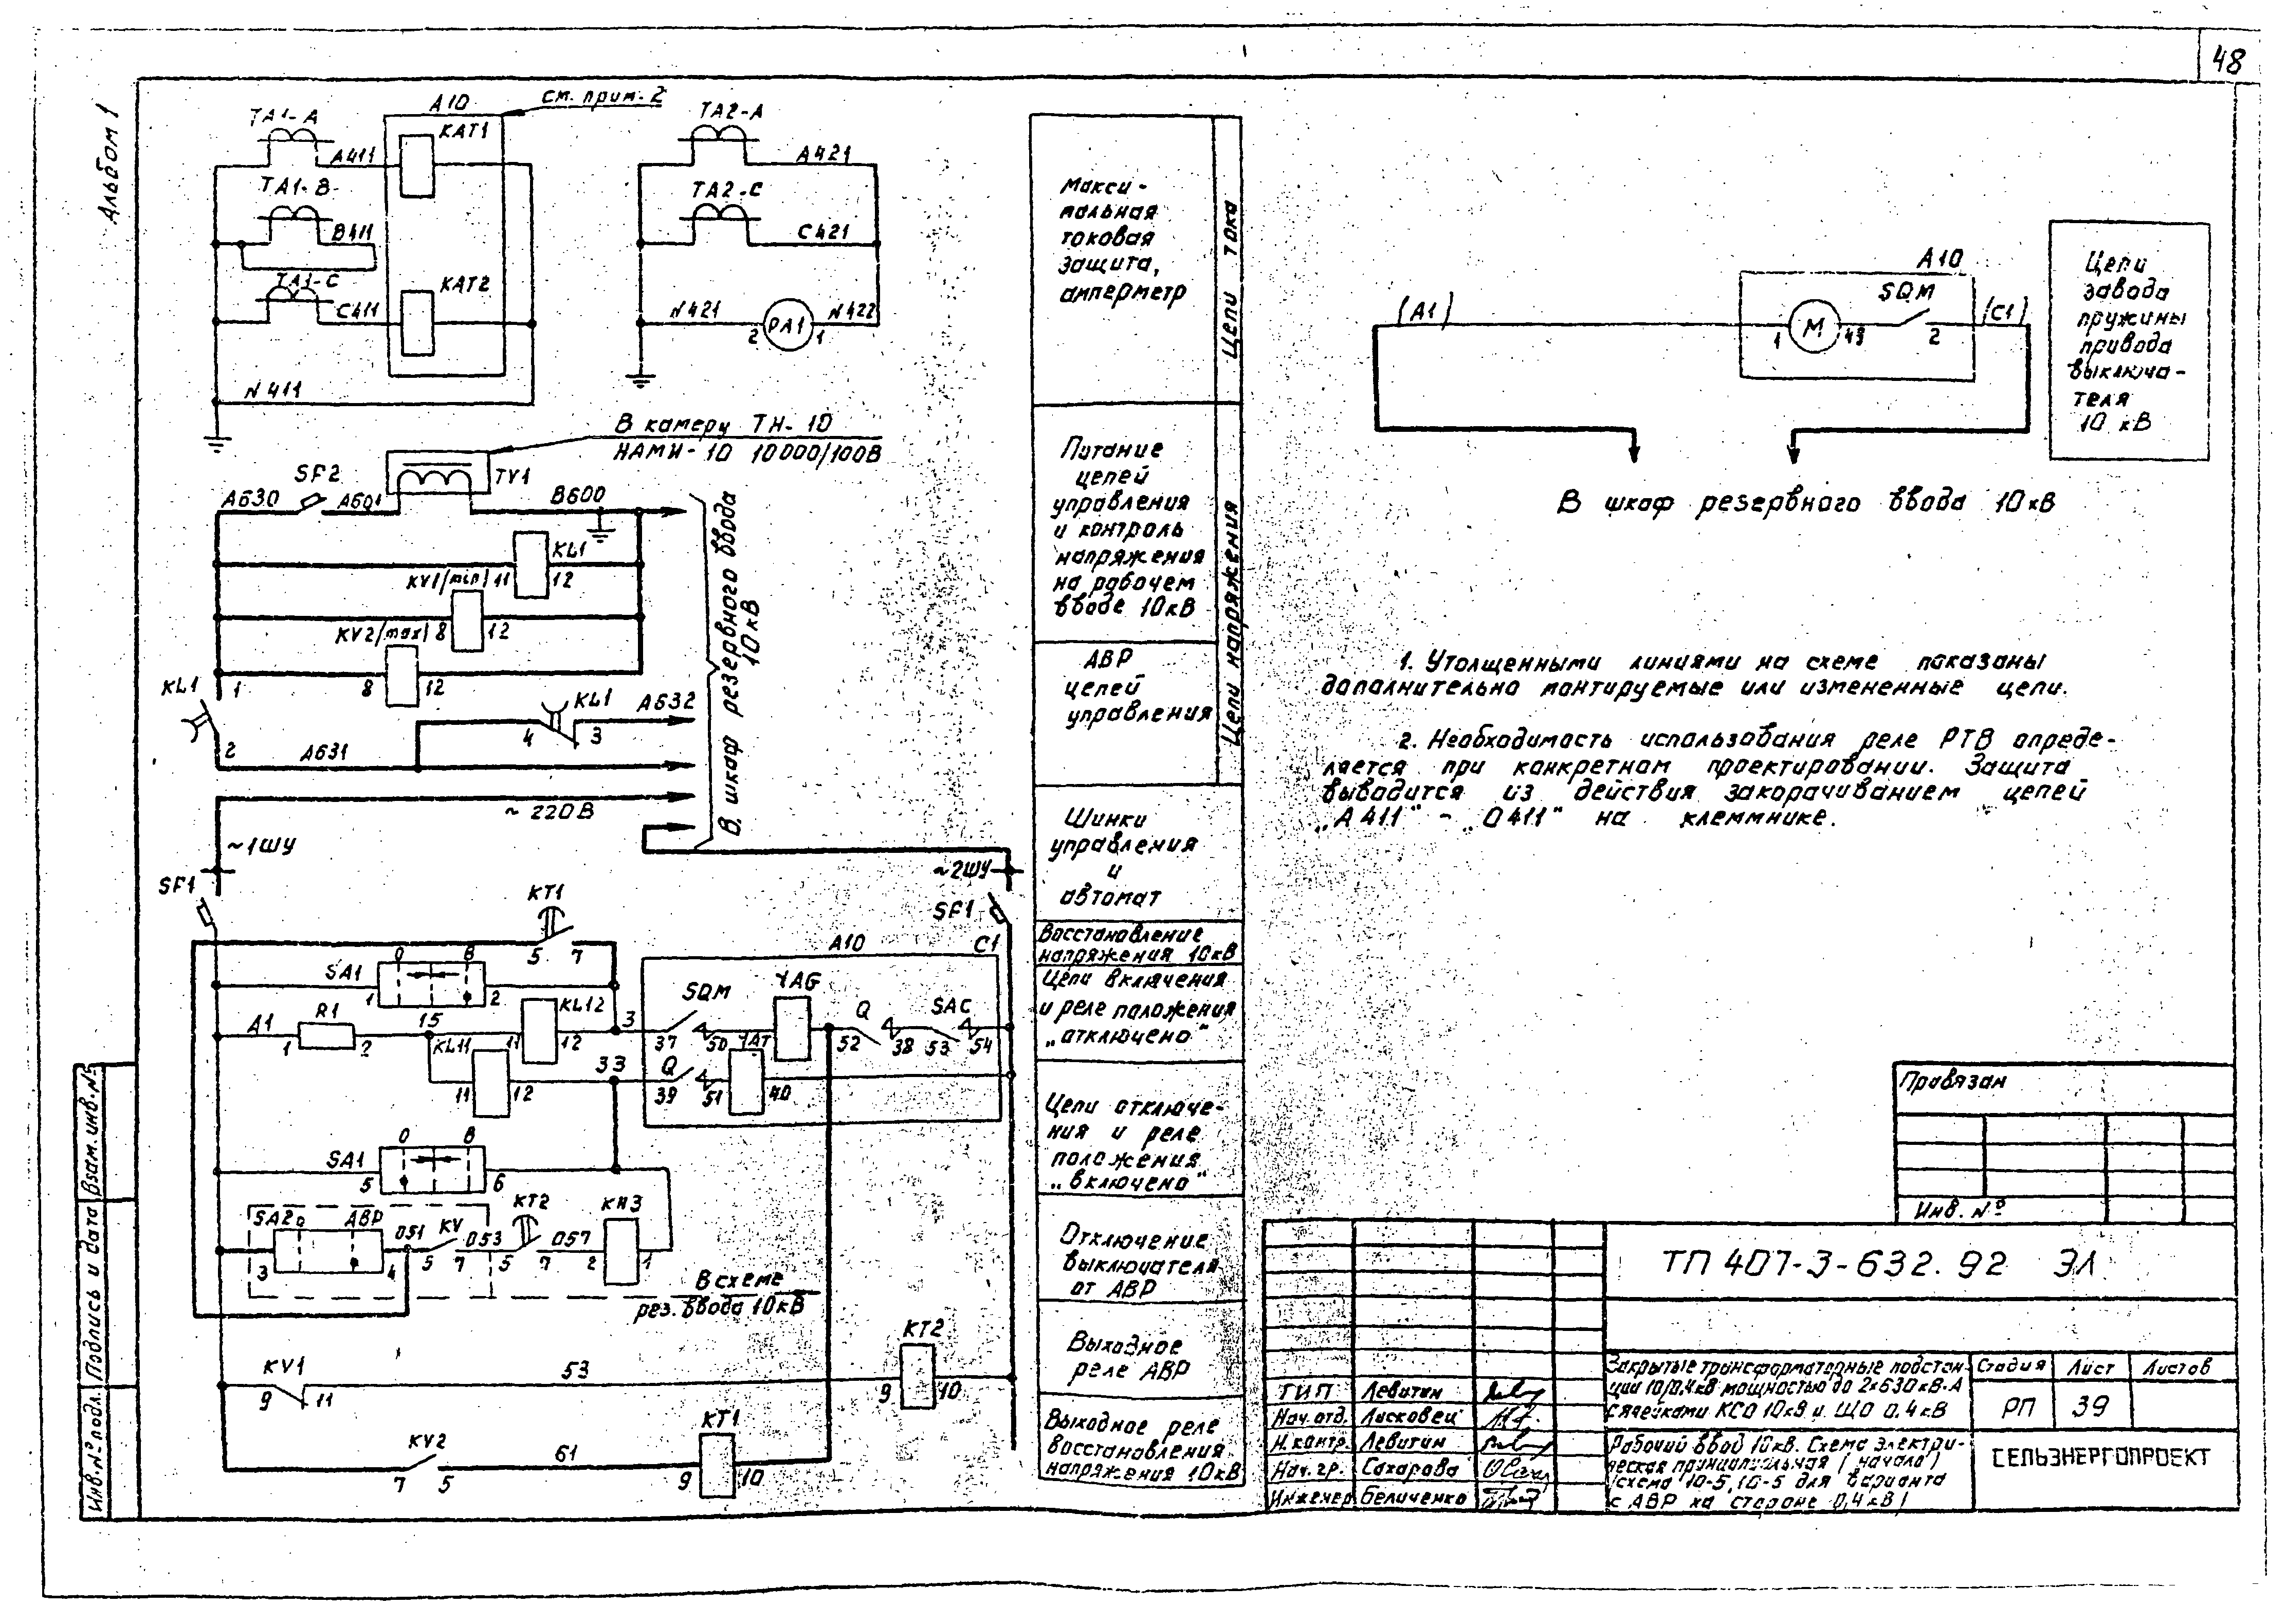 48
Альбом 1
TA1-A
A10
см. прим. 2
KAT1
A411
TA1-B
B411
TA1-C
C411
KAT2
N411
TA2-A
A421
TA2-C
C421
N421
2
PA1
1
N422
В камеру ТН-10
НАМИ-10 10000/100В
SF2
TV1
A630
A601
B600
KL1
KV1(min) 11
12
KV2(max) 8
12
8
12
KL1
1
2
KL1
A632
4
3
A631
~220В
В шкаф резервного ввода
10кВ
~1ШУ
SF1
~2ШУ
SF1
KT1
5
7
A10
C1
SA1
О
В
1
2
KL12
SQM
YAG
Q
SAC
A1
R1
15
1
2
KL11
11
12
3
37
50
YAT
52
38
53
54
11
12
33
Q
39
51
40
SA1
О
В
5
6
SA2
О
АВР
051
KV
053
KT2
057
KH3
3
4
5
7
5
7
2
1
В схеме
рез. ввода 10кВ
KV1
9
11
53
KT2
9
10
KV2
7
5
61
KT1
9
10
Макси-
мальная
токовая
защита,
амперметр
Цепи тока
Питание
цепей
управления
и контроль
напряжения
на рабочем
вводе 10кВ
АВР
цепей
управления
Цепи напряжения
Шинки
управления
и
автомат
Восстановление
напряжения 10кВ
Цепи включения
и реле положения
„отключено"
Цепи отключе-
ния и реле
положения
„включено"
Отключение
выключателя
от АВР
Выходное
реле АВР
Выходное реле
восстановления
напряжения 10кВ
(A1)
A10
SQM
1
M
43
2
(C1)
В шкаф резервного ввода 10кВ
Цепи
завода
пружины
привода
выключа-
теля
10 кВ
1. Утолщенными линиями на схеме показаны
дополнительно монтируемые или измененные цепи.
2. Необходимость использования реле РТВ опреде-
ляется при конкретном проектировании. Защита
выводится из действия закорачиванием цепей
„А411" - „О411" на клеммнике.
Привязан
Инв. №
ТП 407-3-632.92 ЭЛ
Закрытые трансформаторные подстан-
ции 10/0,4кВ мощностью до 2×630кВ·А
с ячейками КСО 10кВ и ЩО 0,4кВ
Стадия
Лист
Листов
РП
39
Рабочий ввод 10кВ. Схема электри-
ческая принципиальная (начало)
(схема 10-5, 10-5 для варианта
с АВР на стороне 0,4кВ)
СЕЛЬЭНЕРГОПРОЕКТ
ГИП Левитин
Нач. отд. Лисковец
Н. контр. Левитин
Нач. гр. Сахарова
Инженер Беличенко
Инв. № подл.
Подпись и дата
Взам. инв. №